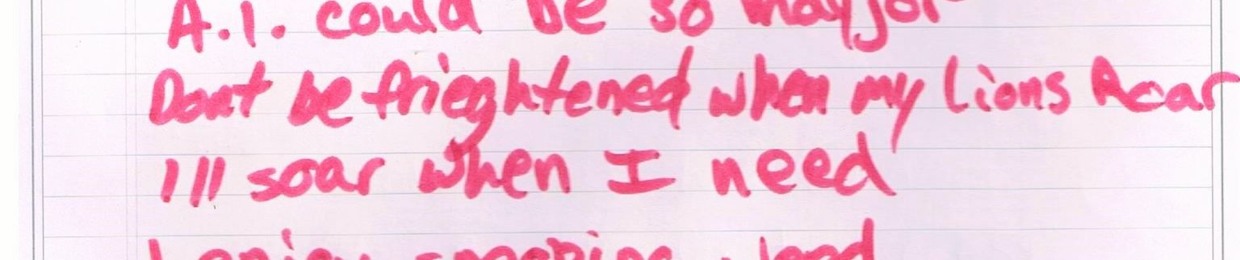 A.I. could be so mayjor
Dont be frieghtened when my Lions Roar
I'll soar when I need
I enjoy